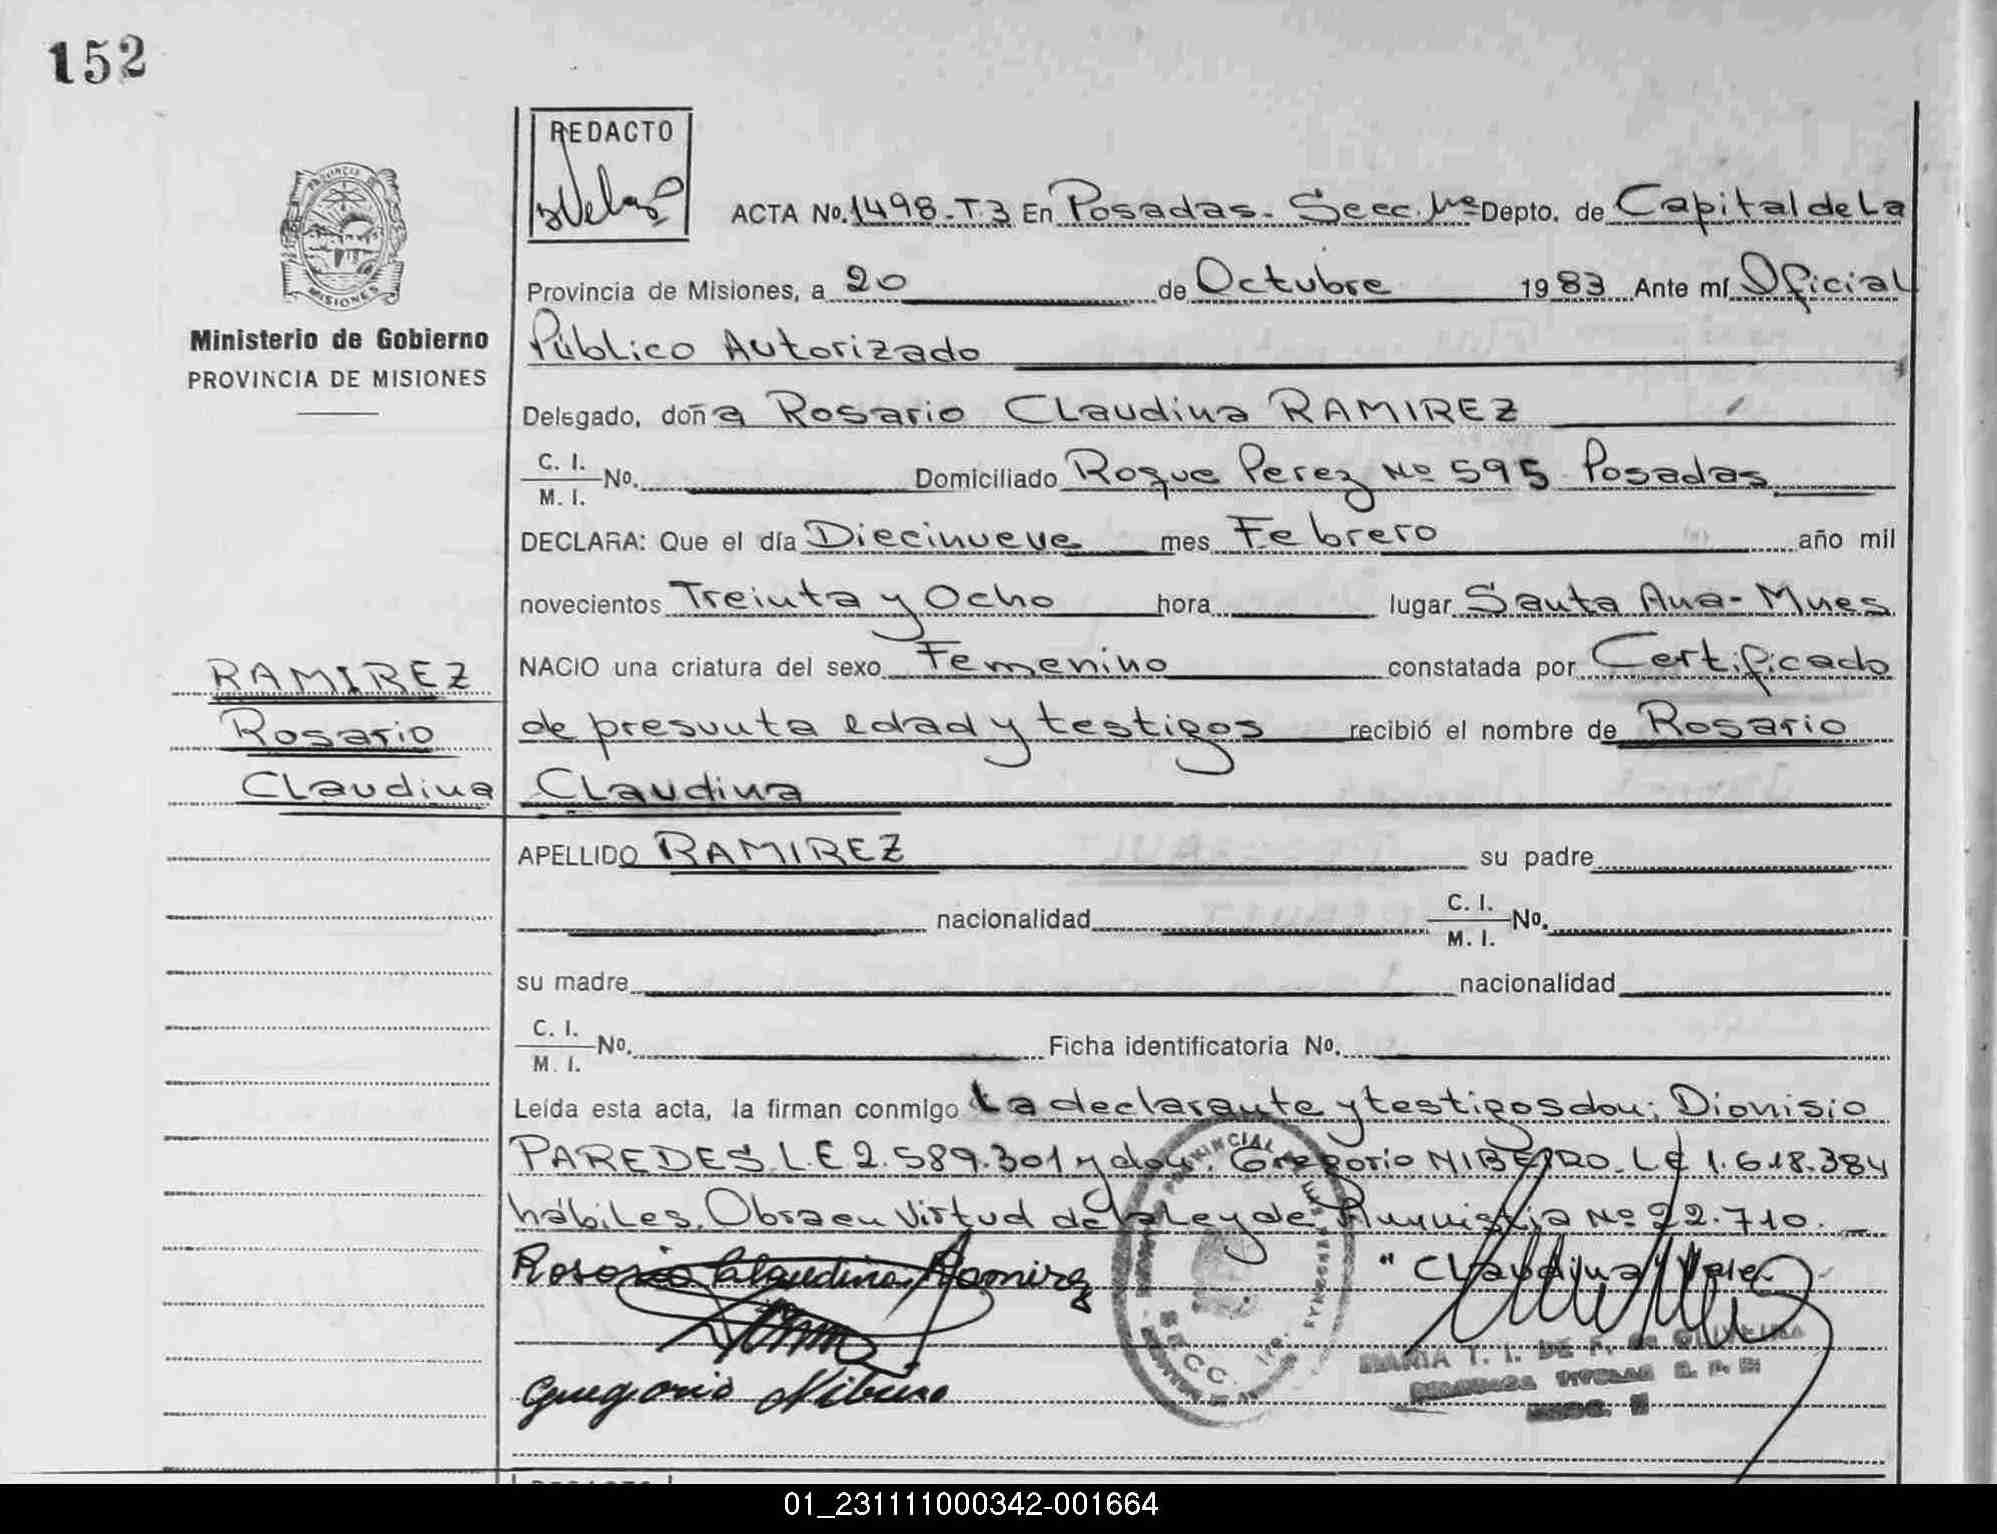 152
REDACTO
ACTA No. 1498-T.3 En Posadas- Secc. 1ra Depto. de Capital de La
Provincia de Misiones, a 20 de Octubre 1983 Ante mí Oficial
Público Autorizado
Delegado, doña Rosario Claudina RAMIREZ
C. I.
M. I. No. Domiciliado Roque Perez Nº 595 Posadas
DECLARA: Que el día Diecinueve mes Febrero año mil
novecientos Treinta y Ocho hora lugar Santa Ana- Mnes
NACIO una criatura del sexo Femenino constatada por Certificado
de presunta edad y testigos recibió el nombre de Rosario
Claudina
APELLIDO RAMIREZ su padre
nacionalidad C. I.
M. I. No.
su madre nacionalidad
C. I.
M. I. No. Ficha identificatoria No.
Leída esta acta, la firman conmigo La declarante y testigos don: Dionisio
PAREDES L.E 2.589.301 y don: Gregorio NIBEIRO L.E 1.618.384
hábiles. Obra en Virtud de la Ley de Amnistia Nº 22.710.
Rosario Claudina Ramirez "Claudina" Vale
Gregorio Nibeiro
PROVINCIA DE
MISIONES
Ministerio de Gobierno
PROVINCIA DE MISIONES
RAMIREZ
Rosario
Claudina
PROVINCIAL
PERSONAS
SECC. 1ra.
MARIA T. I. DE
01_231111000342-001664